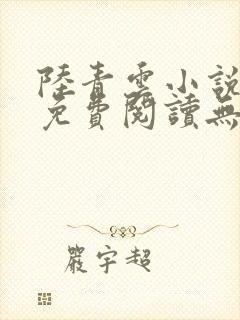 陸青雲小說
免費閱讀無
嚴宇超